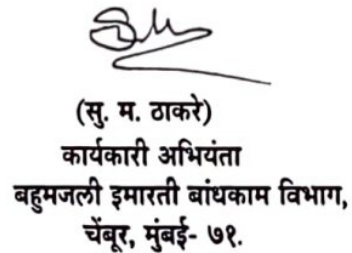 (सु. म. ठाकरे)
कार्यकारी अभियंता
बहुमजली इमारती बांधकाम विभाग,
चेंबूर, मुंबई- ७१.